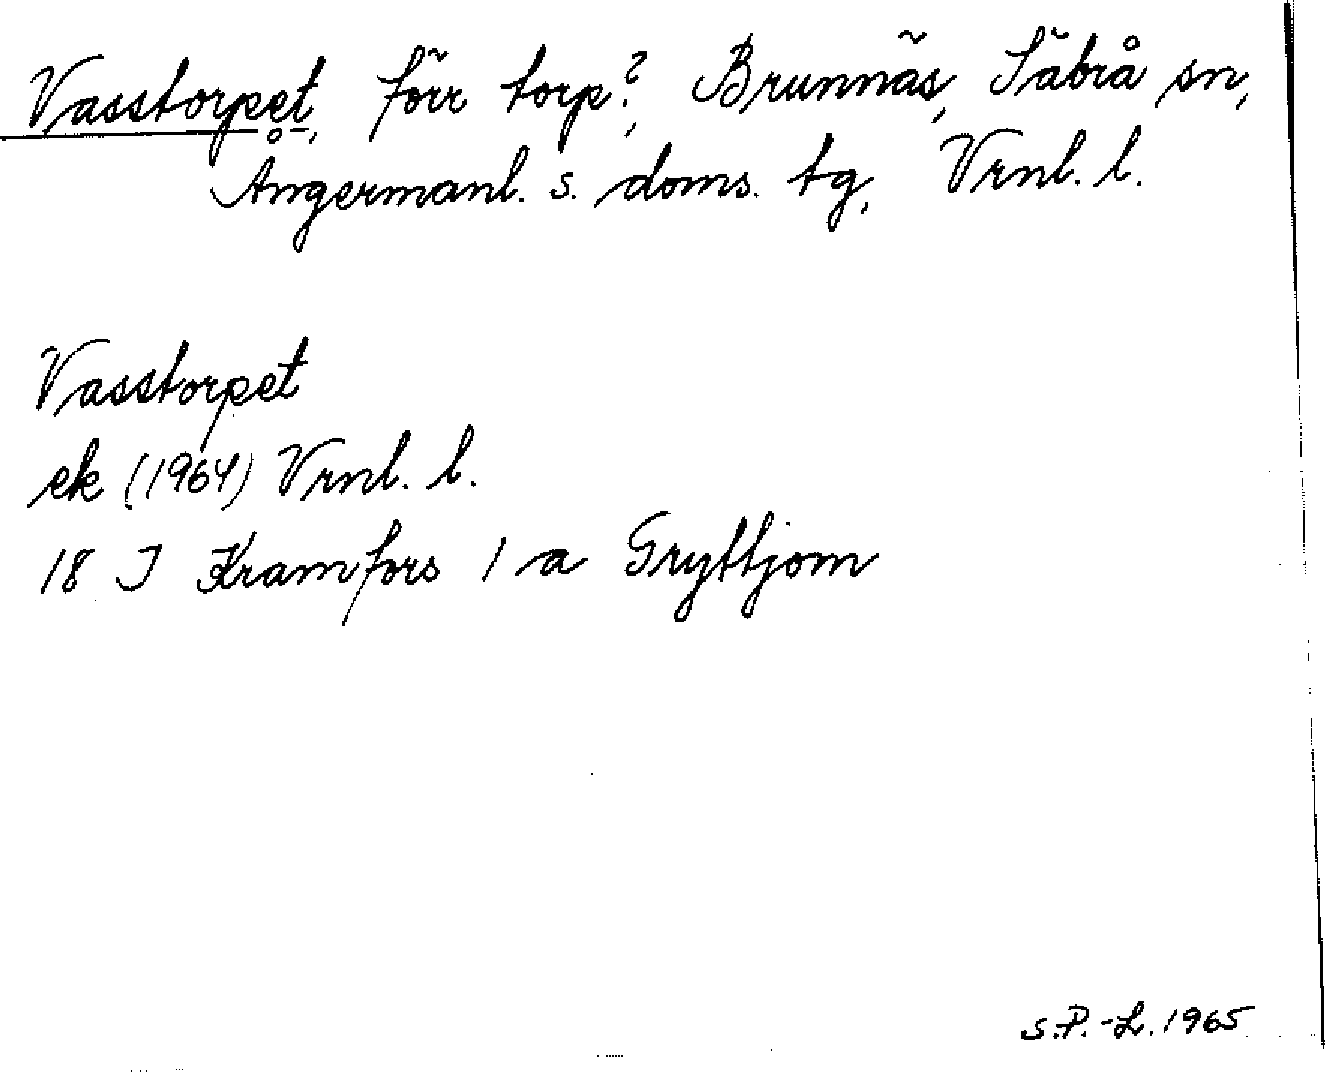 Vasstorpet, förr torp?, Brunnäs, Säbrå sn,
Ångermanl. s. doms. tg, Vrnl. l.
Vasstorpet
ek (1964) Vrnl. l.
18 I Kramfors 1 a Gryttjom
S.P.-L. 1965